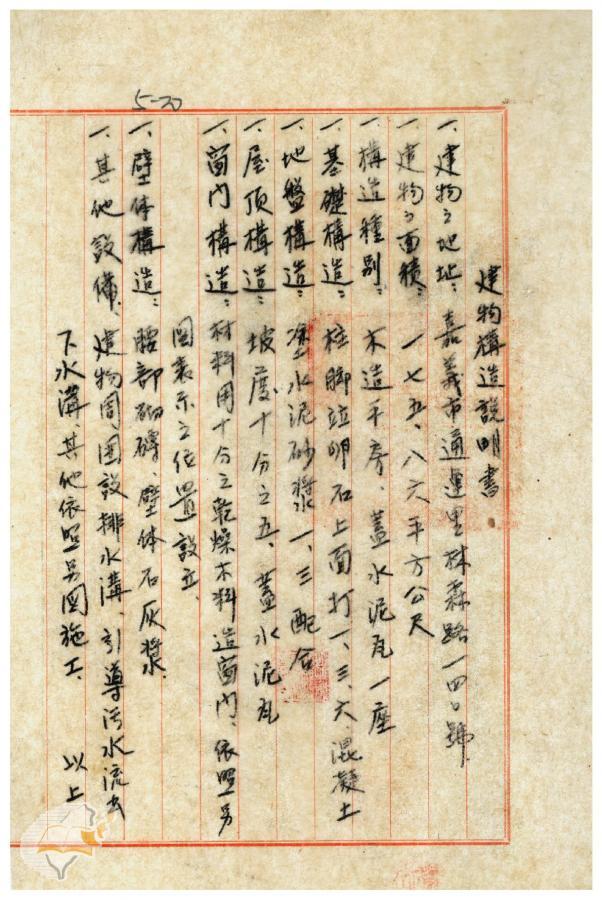 5-20
建物構造說明書
一、建物之地址：嘉義市通運里林森路一四〇號
一、建物之面積：一七五、八六平方公尺
一、構造種別：木造平房、蓋水泥瓦一座
一、基礎構造：柱腳竝卵石上面打一、三、六、混凝土
一、地盤構造：塗水泥砂漿一、三配合
一、屋頂構造：坡度十分之五、蓋水泥瓦
一、窗門構造：材料用十分之乾燥木料造窗門、依照另
圖表示之位置設立、
一、壁体構造：腰部砌磚、壁体石灰漿、
一、其他設備、建物周圍設排水溝、引導污水流去
下水溝、其他依照另圖施工、
以上